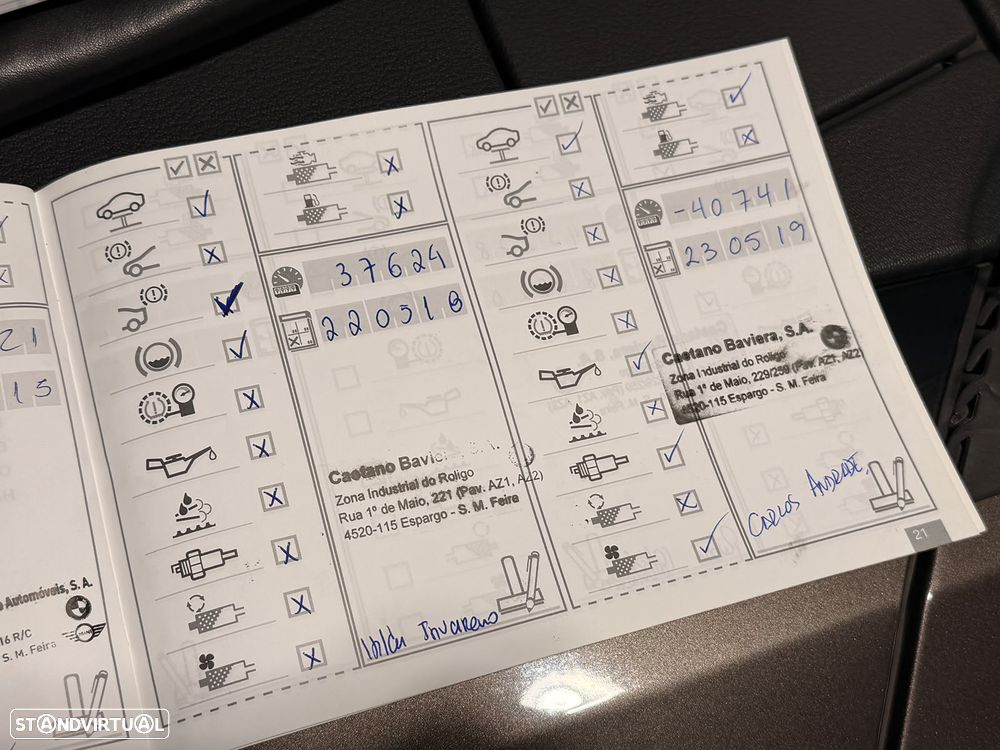 21
15
Automóveis, S. A.
16 R/C
S. M. Feira
MINI
37624
220518
Caetano Baviera
Zona Industrial do Roligo
Rua 1º de Maio, 221 (Pav. AZ1, AZ2)
4520-115 Espargo - S. M. Feira
-40741
230519
Caetano Baviera, S.A.
Zona Industrial do Roligo
Rua 1º de Maio, 229/259 (Pav. AZ1, AZ2
4520-115 Espargo - S. M. Feira
CARLOS ANDRADE
21
STANDVIRTUAL